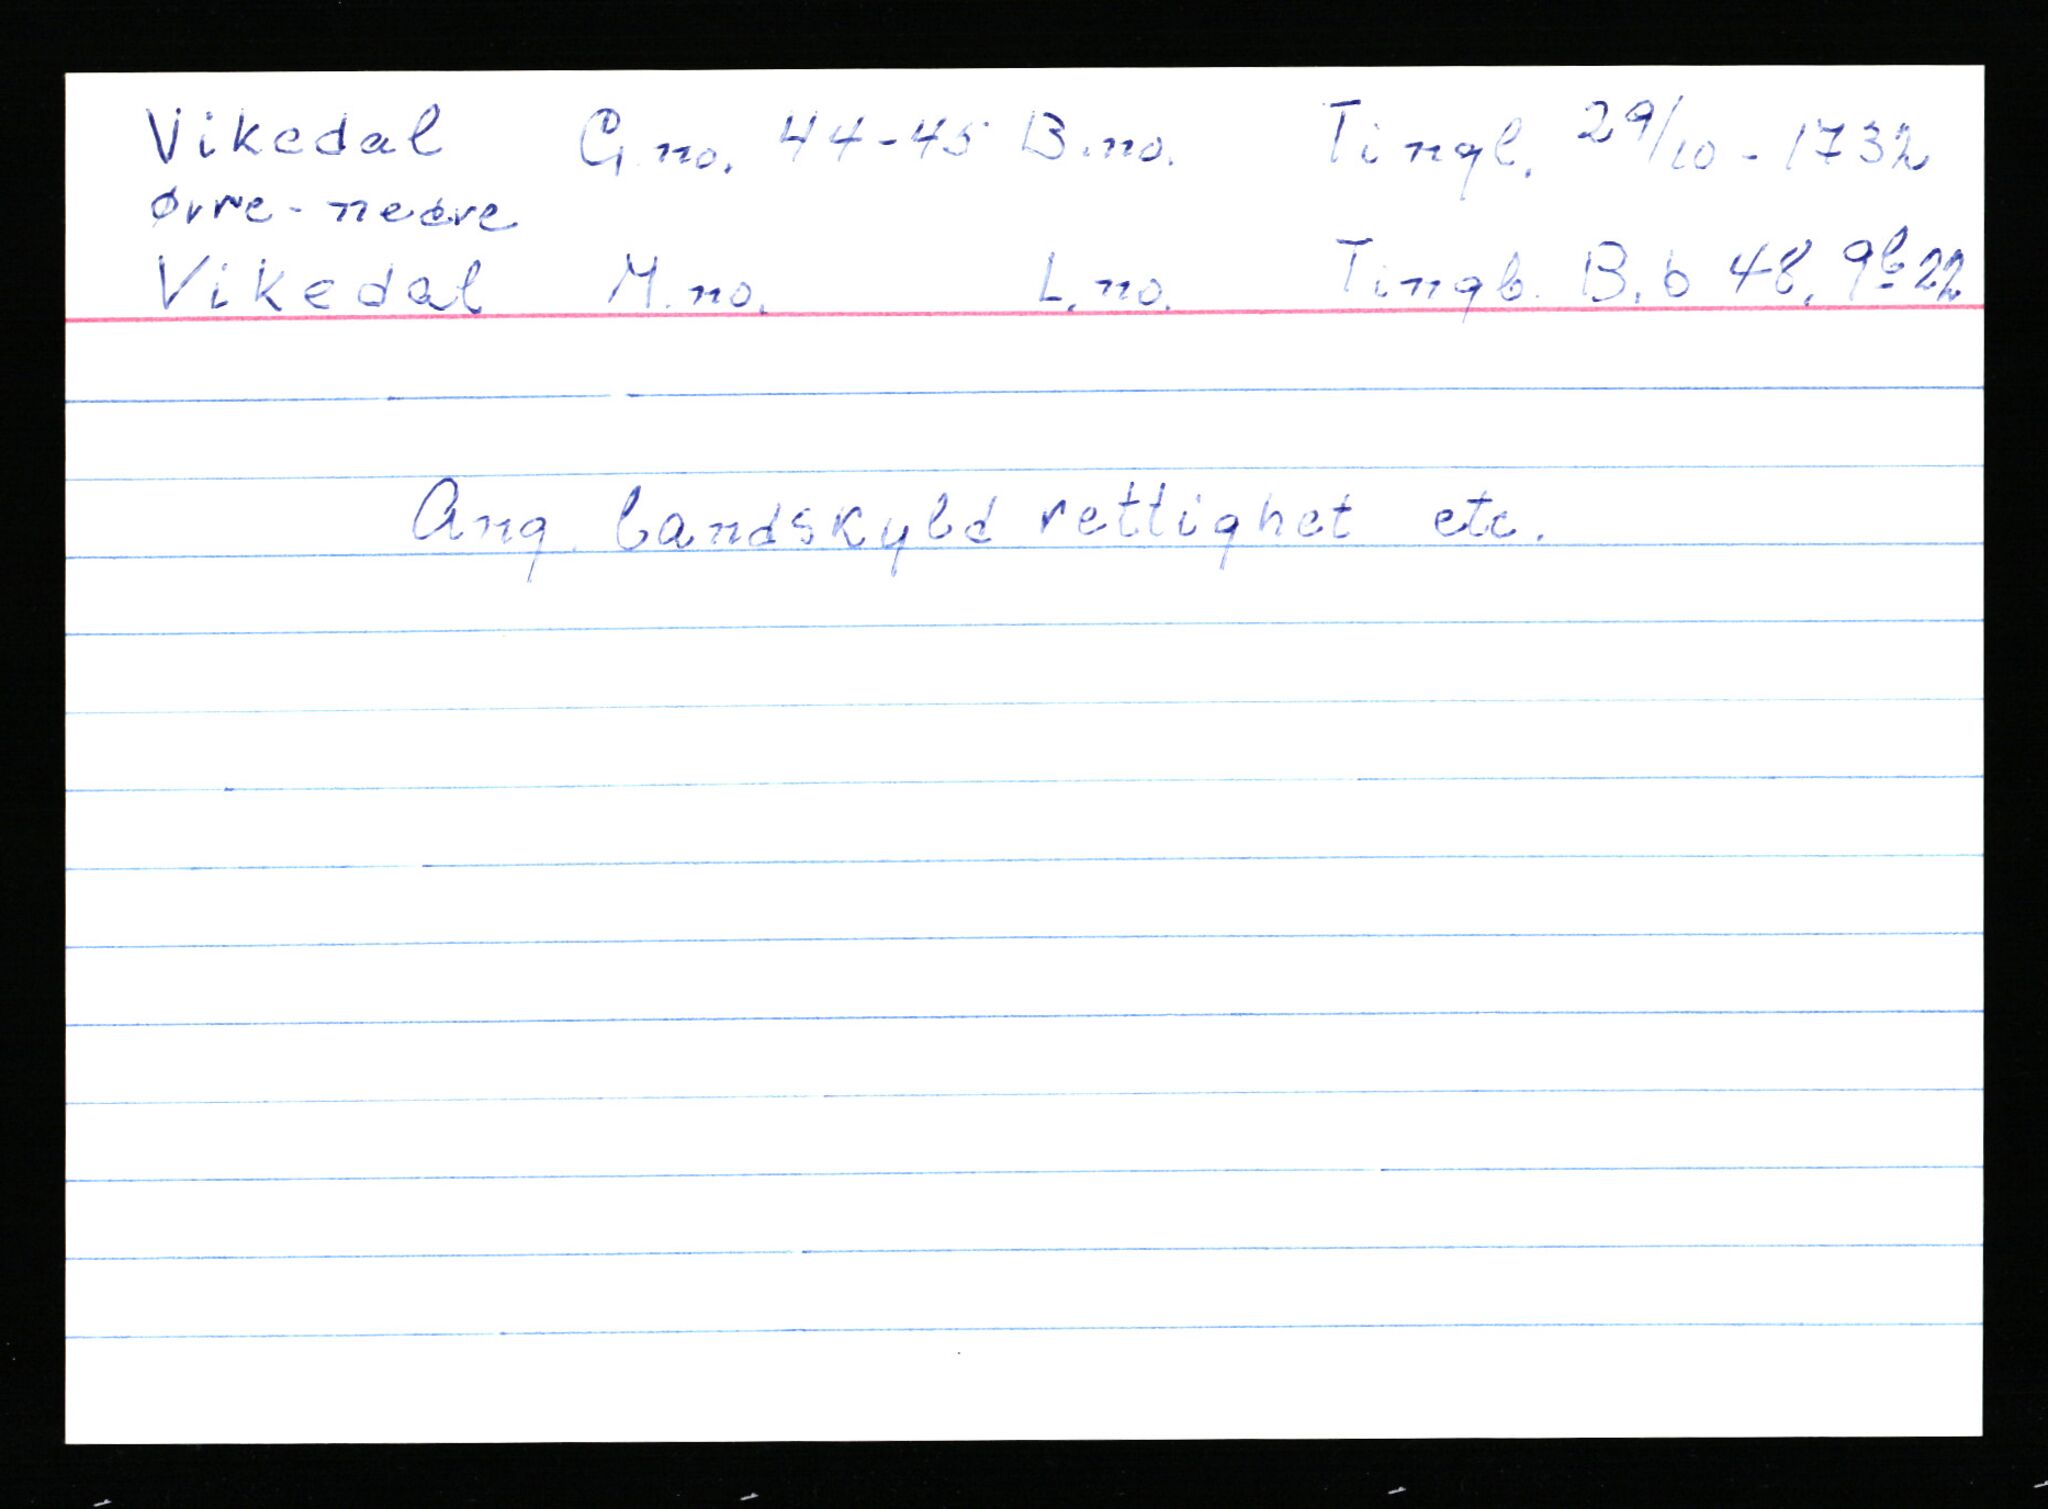 Vikedal G.no. 44-45 B.no. Tingl. 29/10-1732
øvre-nedre
Vikedal M.no. L.no. Tingb. B.b 48, 9b-22
Ang. landskyld rettighet etc.